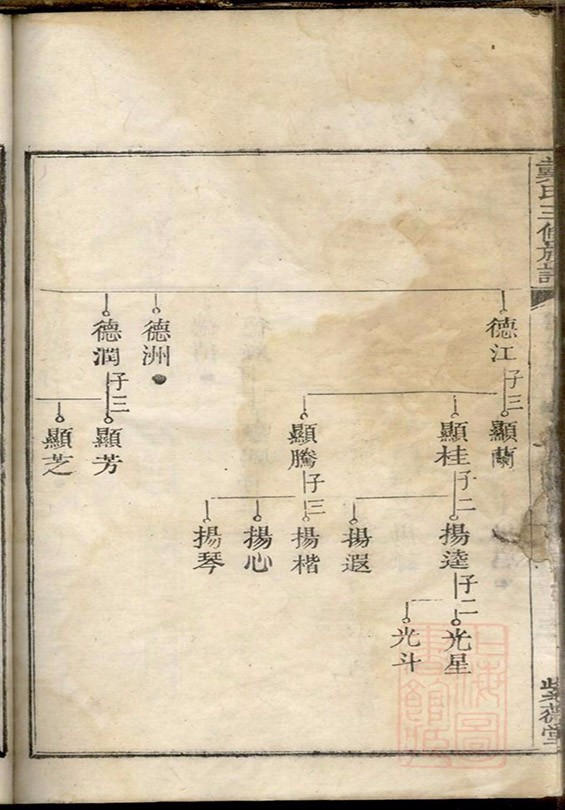 戴氏三修族譜
德江
子三
顯蘭
顯桂
子二
揚逵
子二
光星
光斗
揚遐
顯騰
子三
揚楷
揚心
揚琴
德洲
德潤
子三
顯芳
顯芝
紫薇堂
上海圖書館藏